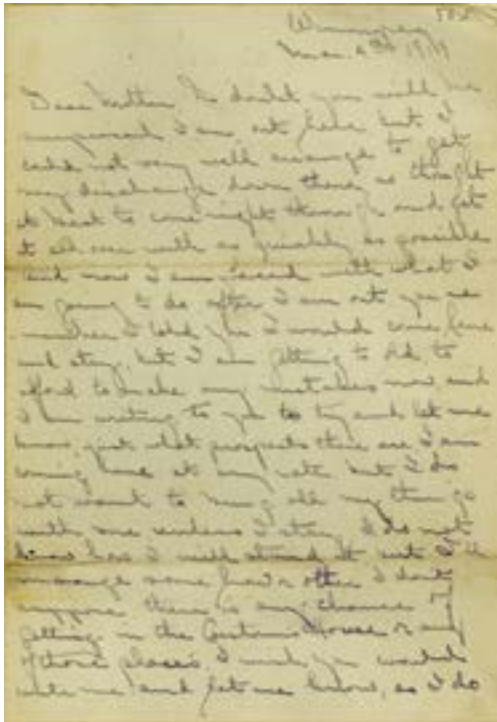 Winnipeg
Mar. 4th 1919
Dear Mother No doubt you will be
surprised I am out here but I
could not very well arrange to get
my discharge down there so thought
it best to come right through and get
it all over with as quickly as possible
and now I am faced with what I
am going to do after I am out you re
member I told you I would come home
and stay, but I am getting to old to
afford to make any mistakes now and
I am writing to you to try and let me
know just what prospects there are I am
coming home at any rate but I do
not want to bring all my things
with me unless I stay. I do not
know how I will stand it but I'll
manage some how or other I don't
suppose there is any chance of
getting in the Customs House or any
of those places, I wish you would
write me and let me know, as I do